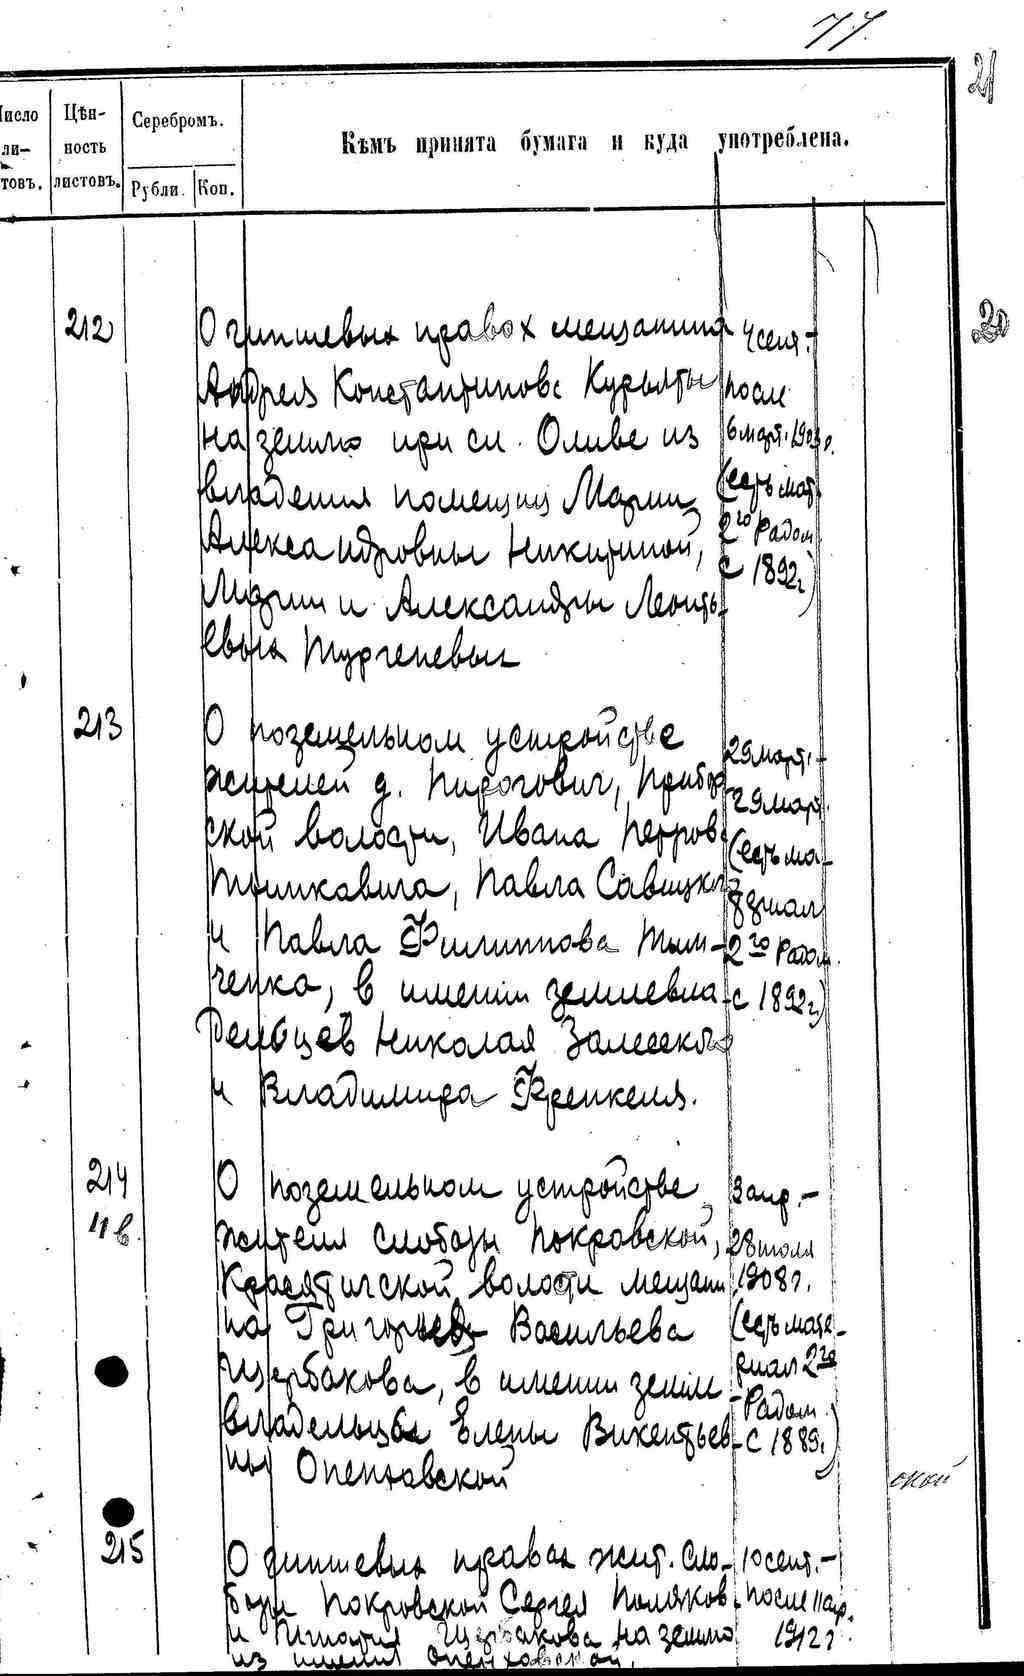 77
21
Число листовъ.
Цѣнность листовъ.
Серебромъ.
Рубли.
Коп.
Кѣмъ принята бумага и куда употреблена.
20
212
О чиншевых правах мещанина
Андрея Константинова Курылты
на землю при сл. Оливе из
владения помещиц Марии
Александровны Никитиной,
Марии и Александры Леонть-
евых Тургеневых
4 сент.-
после
6 март. 1903 г.
(есть мат.
2го Радом.
с 1892 г.)
213
О поземельном устройстве
жителей д. Пирогович, Прибор
ской волости, Ивана Петров
Павла Савицкого
и Павла Филиппова Тым-
ченка, в имении землевла-
дельцев Николая Залесского
и Владимира Френкеля.
29 март.-
29 март.
(есть ма-
териал
2го Радом.
с 1892 г.)
214
11 в
О поземельном устройстве
жителя слободы Покровской,
Красятичской волости мещани
на Григория Васильева
Щербакова, в имении земле
владельцы Елены Викентьев
ны Опенховской
3 апр.-
28 июля
1908 г.
(есть мате-
риал 2го
Радом.
с 1889 г.)
ской
215
О чиншевых правах жит. сло-
боды Покровской Сергея Поляков
и Игнатия Щербакова на землю
из имения Опенховской.
10 сент.-
после 11 апр.
1912 г.